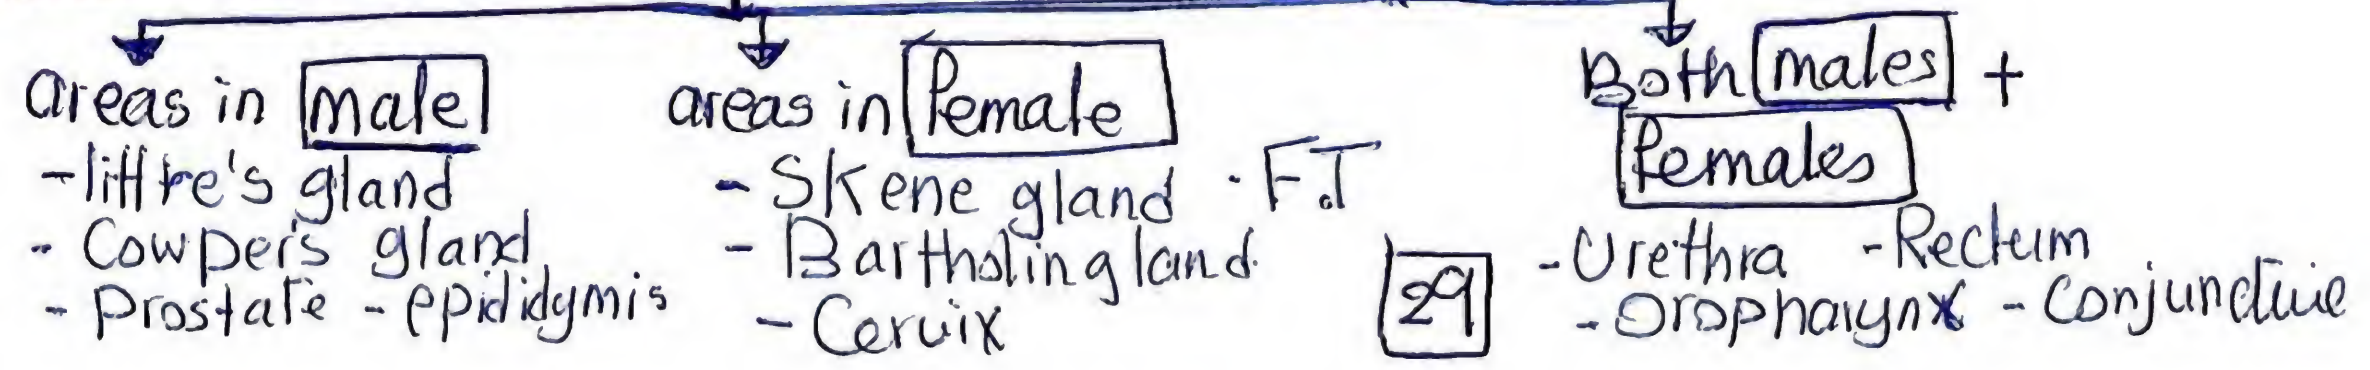 areas in male
- littre's gland
- Cowper's gland
- Prostate - epididymis
areas in female
- Skene gland - F.T
- Bartholin gland
- Cervix
29
Both males +
females
- Urethra - Rectum
- Oropharynx - Conjunctive